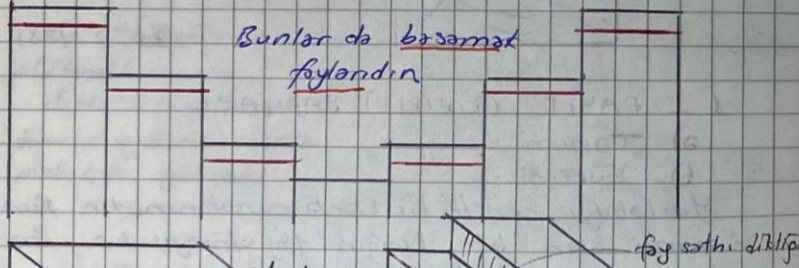 Bunlar da basamak
faylandın
fay sathı dikliği